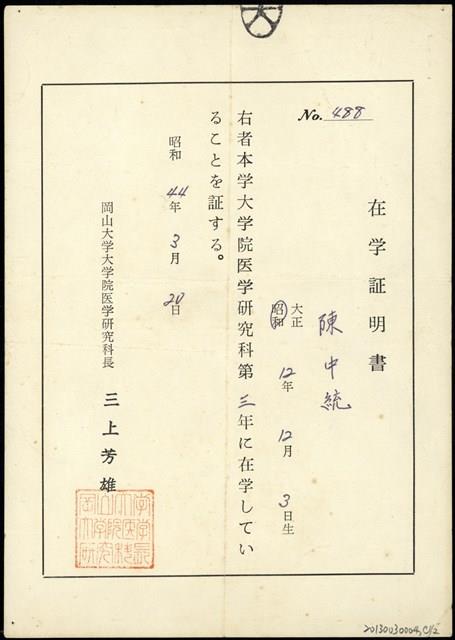 No. 488
在学証明書
陳中統
大正
昭和 12年 12月 3日生
右者本学大学院医学研究科第三年に在学してい
ることを証する。
昭和 44年 3月 20日
岡山大学大学院医学研究科長 三上芳雄
岡山大学
大学院医学
研究科長